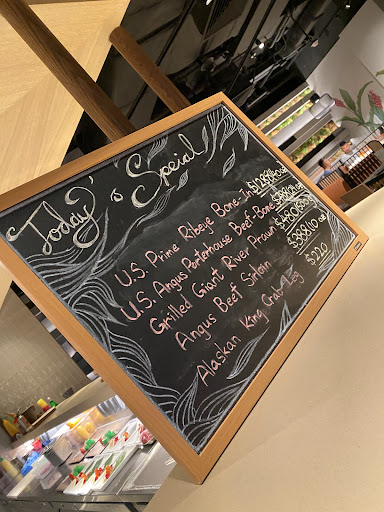 Today's Special
U.S. Prime Ribeye Bone-In
U.S. Angus Porterhouse Beef Bone
Grilled Giant River Prawn
Angus Beef Sirloin
Alaskan King Crab Leg $220